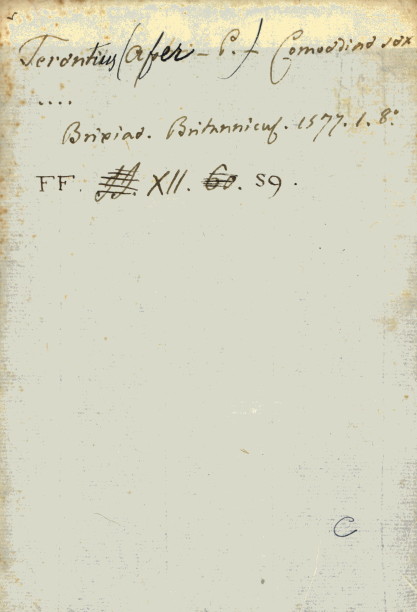 Terentius (Afer - P.) Comoediae sex
....
Brixiae. Britannicus. 1577. 1. 8°
FF. XII. 60. S9.
C